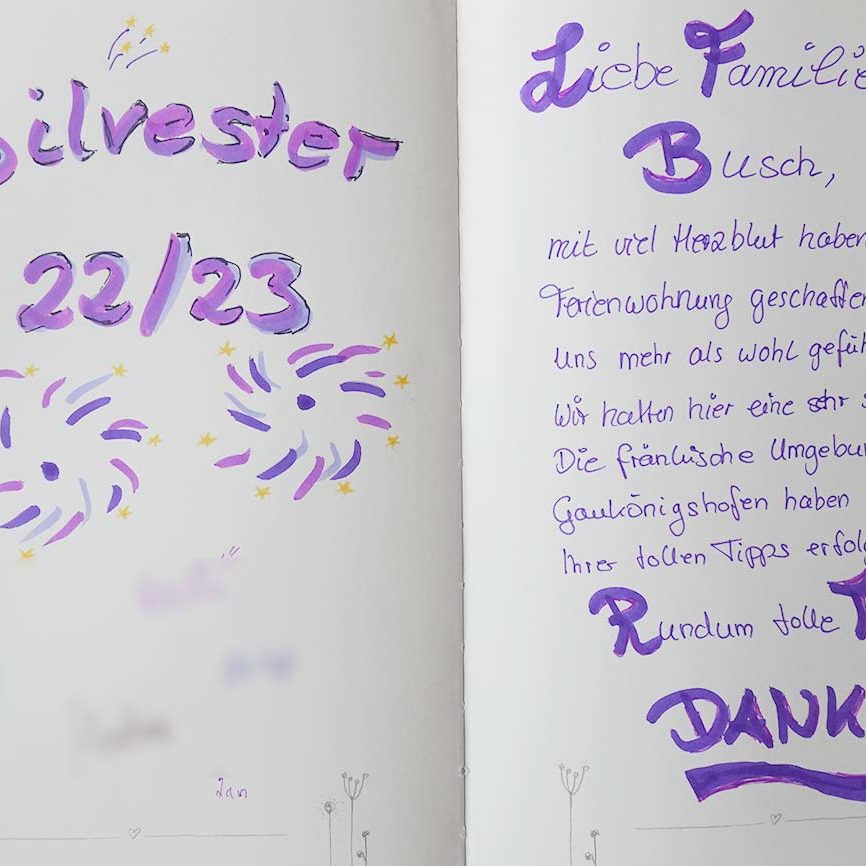 Silvester
22/23
Jan
Liebe Familie
Busch,
mit viel Herzblut haben
Ferienwohnung geschaffen
Uns mehr als wohl gefüh
Wir hatten hier eine sehr
Die fränkische Umgebun
Gaukönigshofen haben
Ihrer tollen Tipps erfolg
Rundum tolle
DANK